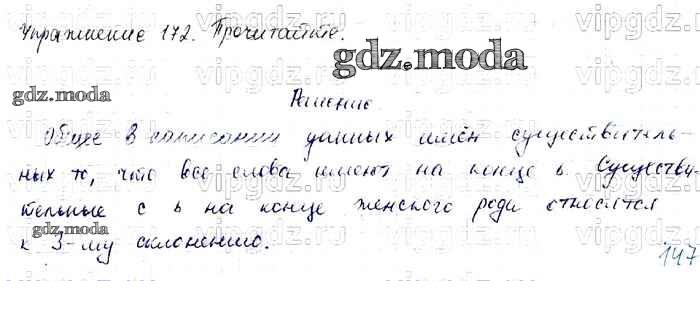 Упражнение 172. Прочитайте.
gdz.moda
gdz.moda
Решение.
Общее в написании данных имён существитель-
ных то, что все слова имеют на конце ь. Существи-
тельные с ь на конце женского рода относятся
gdz.moda
к 3-му склонению.
147
gdz.moda
vipgdz.ru